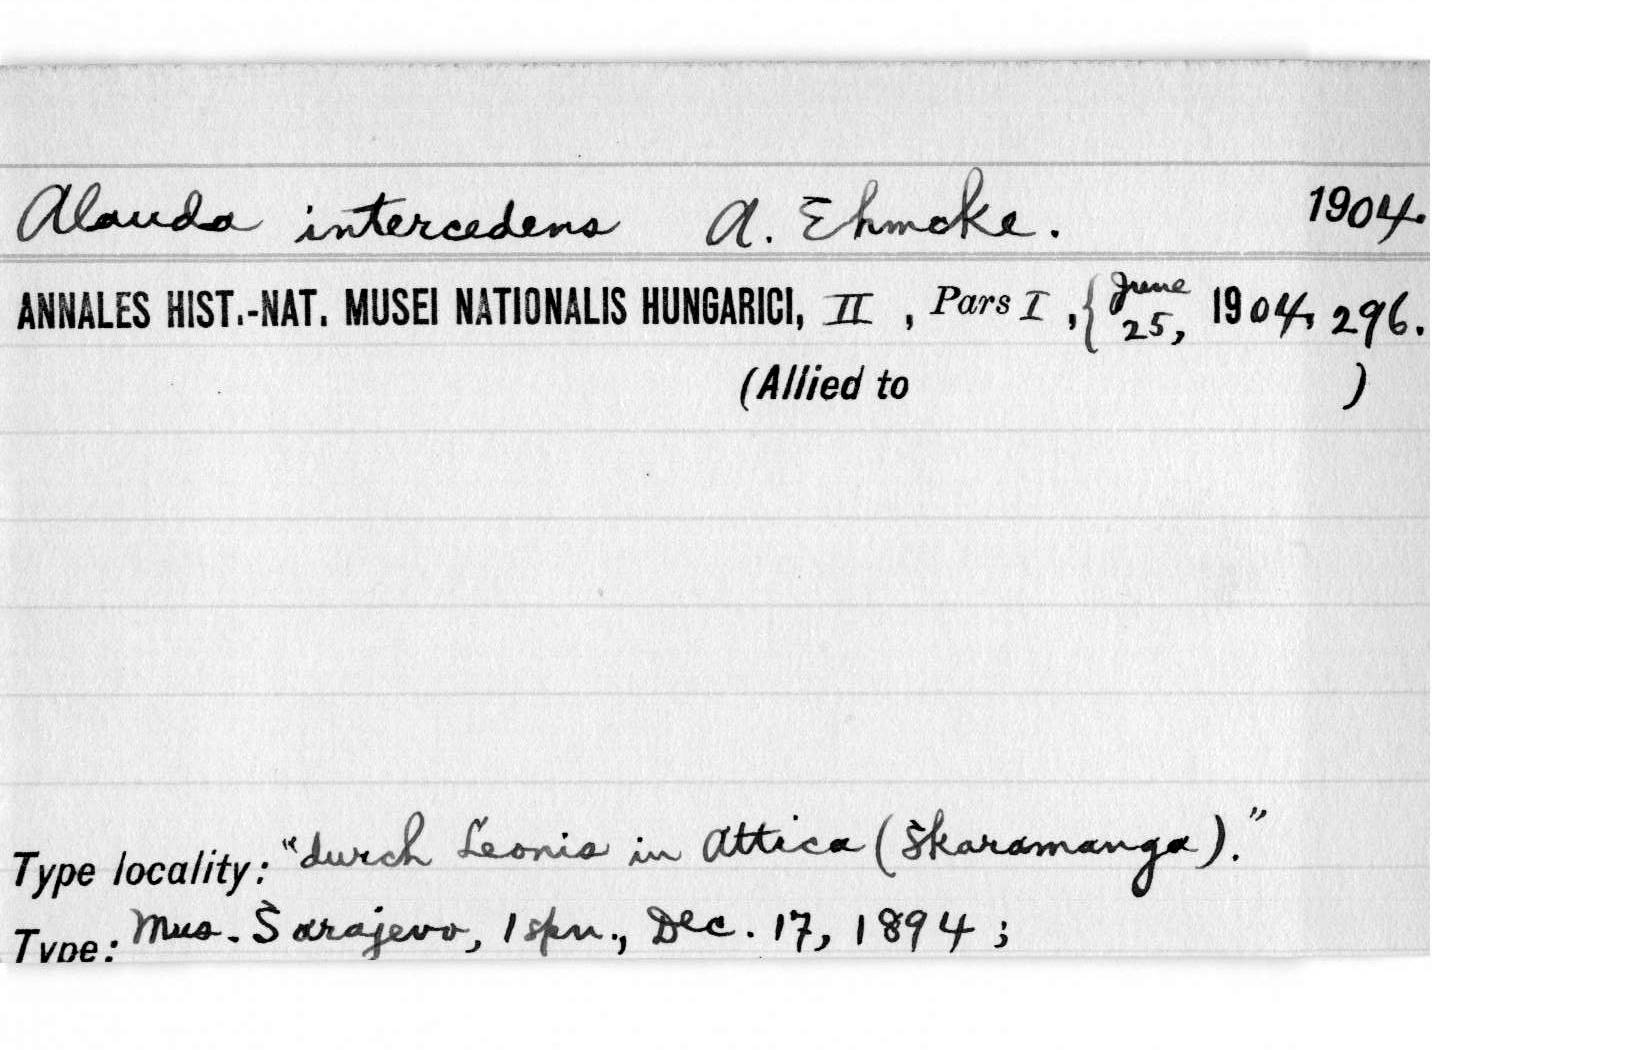 Alauda intercedens A. Ehmcke. 1904.
ANNALES HIST.-NAT. MUSEI NATIONALIS HUNGARICI, II , Pars I , { June 25, 1904, 296.
(Allied to )
Type locality: "durch Leonis in Attica (Skaramanga)."
Type: Mus. Sarajevo, 1 spn., Dec. 17, 1894 ;